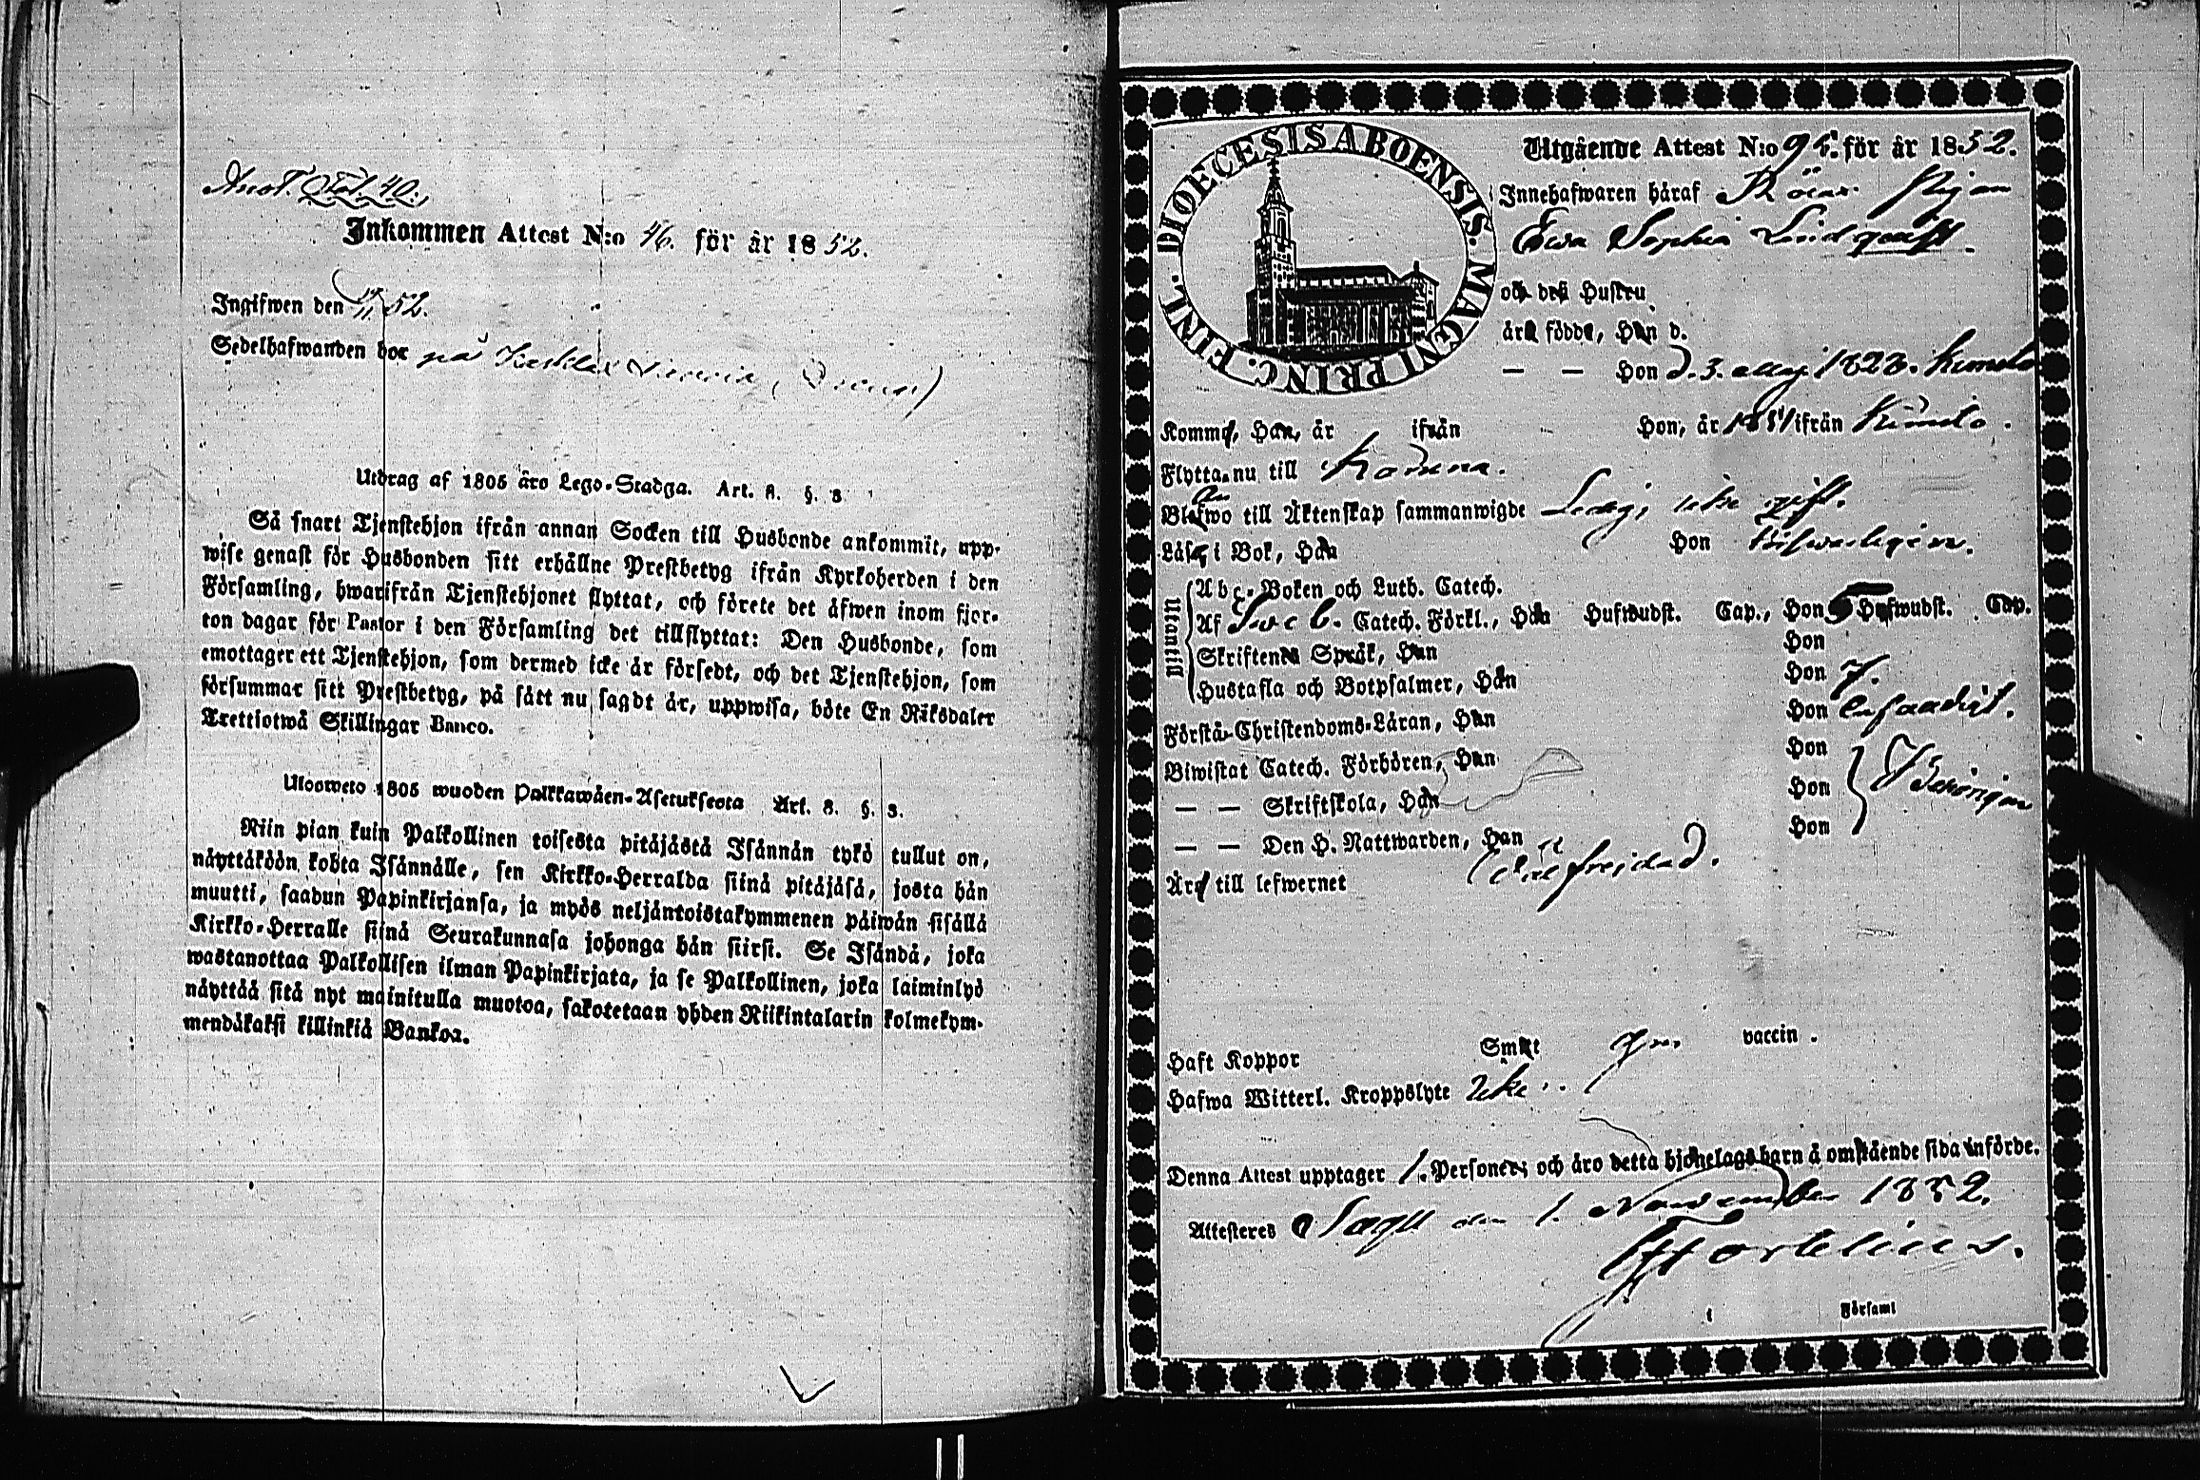 Anot. Fol. 40.
Inkommen Attest N:o 46. för år 1852.
Ingifwen den 17/11 52.
Sedelhafwanden bor på
Utdrag af 1805 års Lego-Stadga. Art. 8. §. 3
Så snart Tjenstehjon ifrån annan Socken till Husbonde ankommit, upp-
wise genast för Husbonden sitt erhållne Prestbetyg ifrån Kyrkoherden i den
Församling, hwarifrån Tjenstehjonet flyttat, och förete det äfwen inom fjor-
ton dagar för Pastor i den Församling det tillflyttat: Den Husbonde, som
emottager ett Tjenstehjon, som dermed icke är försedt, och det Tjenstehjon, som
försummar sitt Prestbetyg, på sätt nu sagdt är, uppwisa, böte En Riksdaler
Trettiotwå Skillingar Banco.
Uloosweto 1805 wuoden Palkkawäen-Asetuksesta Art. 8. §. 3.
Niin pian kuin Palkollinen toisesta pitäjästä Isännän tykö tullut on,
näyttäköön kohta Isännälle, sen Kirkko-Herralda siinä pitäjäsä, josta hän
muutti, saadun Papinkirjansa, ja myös neljäntoistakymmenen päiwän sisällä
Kirkko-Herralle siinä Seurakunnasa johonga hän siirsi. Se Isändä, joka
wastanottaa Palkollisen ilman Papinkirjata, ja se Palkollinen, joka laiminlyö
näyttää sitä nyt mainitulla muotoa, sakotetaan yhden Riikintalarin kolmekym-
mendäkaksi killinkiä Bankoa.
DIOECESIS ABOENSIS. MAGNI PRINC. FINL.
Utgående Attest N:o för år 1852.
Innehafwaren häraf Pigan
Ewa Sophia Lindqvist.
och dess Hustru
äro födde, Han d.
— — Hon d. 3. Maji 1823. Kimito
Komne, Han, år ifrån Hon, år 1851 ifrån Kimito.
Flytta nu till
Blefwo till Äktenskap sammanwigde Ledig, icke gift.
Läsa i Bok, Han Hon förswarligen.
Utantill
Abc-Boken och Luth. Catech.
Af Sweb. Catech. Förkl., Han Hufwudst. Cap., Hon 5 Hufwudst. Cap.
Skriftenes Språk, Han Hon
Hustafla och Botpsalmer, Han Hon
Förstå Christendoms-Läran, Han Hon enfaldigt.
Biwistat Catech. Förhören, Han Hon
— — Skriftskola, Han Hon
— — Den H. Nattwarden, Han Hon
Äro till lefwernet oklanderlig frejdad.
Haft Koppor Smitt vaccin.
Hafwa Witterl. Kroppslyte Icke
Denna Attest upptager 1. Personer; och äro detta hjonelags barn å omstående sida införde.
Attesteres Sagu den 1. November 1852.
Forteliues.
Församl